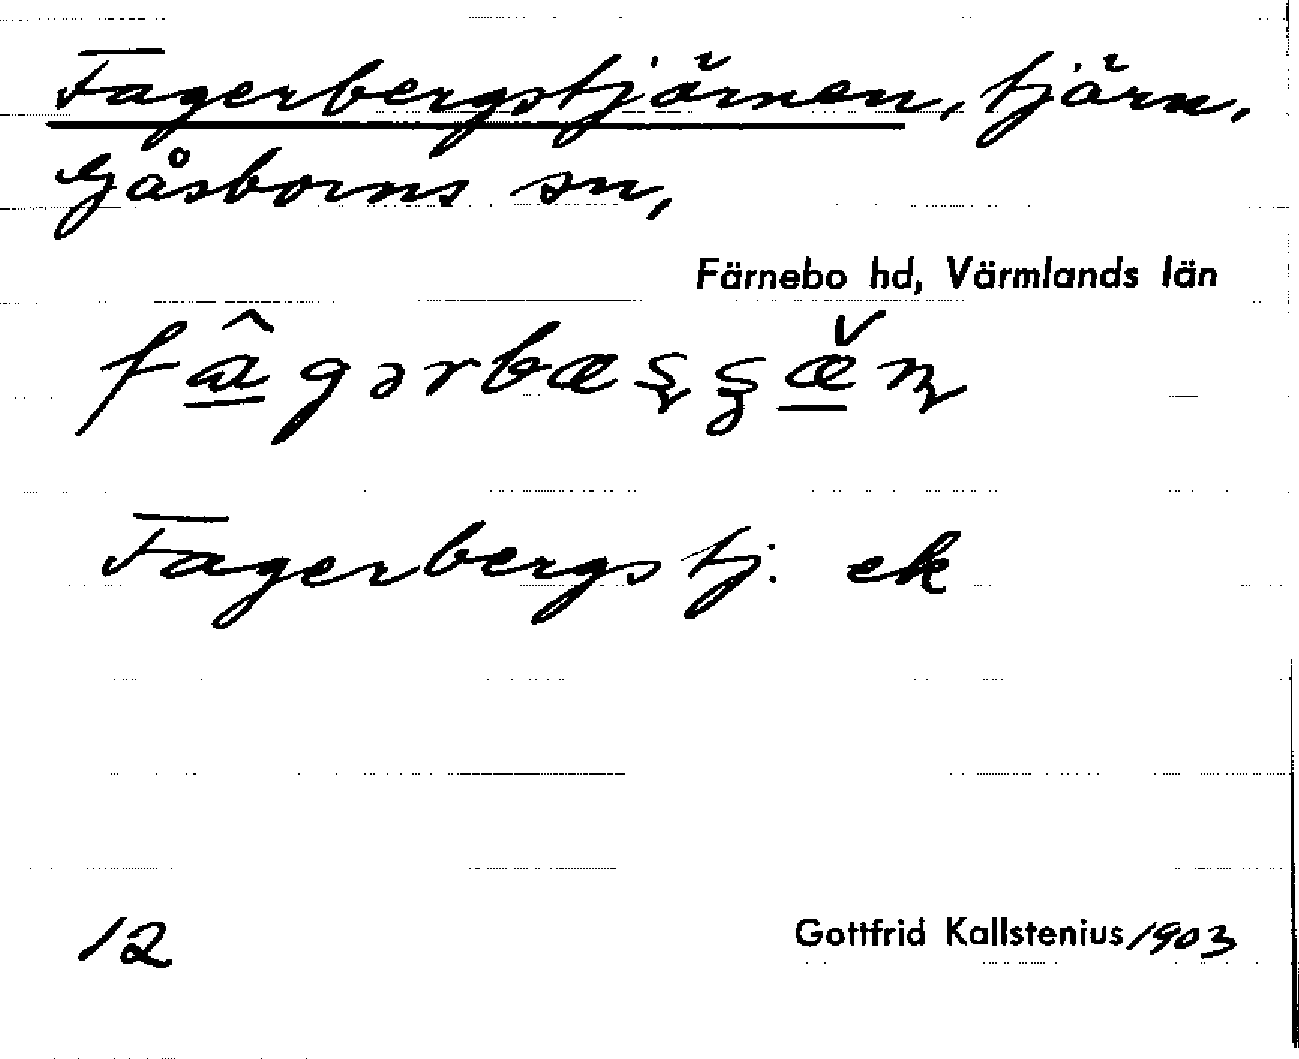 Fagerbergstjärnen, tjärn.
Gåsborns sn,
Färnebo hd, Värmlands län
Fagerbergstj. ek
12
Gottfrid Kallstenius 1903